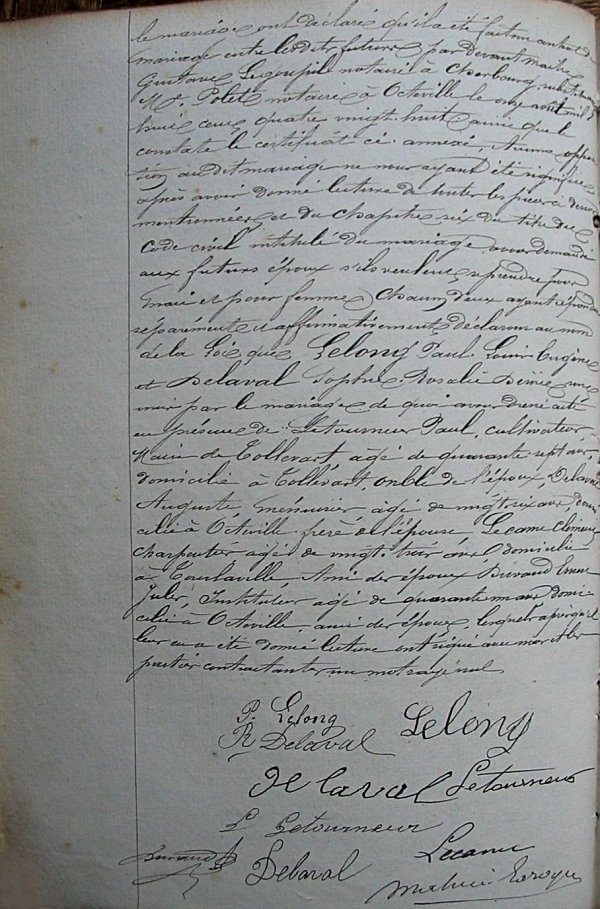 le mariage ont déclaré qu'il a été fait un contrat de
mariage entre les dits futurs par devant maître
Gustave Legoupil notaire à Cherbourg
Me Polet notaire à Octeville le onze août mil
huit cent quatre vingt huit ainsi que le
constate le certificat ci annexé, Aucune opposi
tion au dit mariage ne nous ayant été signifiée
après avoir donné lecture de toutes les pièces ci dessus
mentionnées et du chapitre six du titre du
Code civil intitulé du mariage avons demandé
aux futurs époux s'ils veulent se prendre pour
mari et pour femme, Chacun d'eux ayant répondu
séparément et affirmativement déclarons au nom
de la Loi que Lelong Paul Louis Eugène
et Delaval Sophie Rosalie Désirée sont
unis par le mariage de quoi avons dressé acte
en présence de Letourneur Paul, cultivateur
Maire de Tollevast âgé de quarante sept ans,
domicilié à Tollevast oncle de l'époux, Delaval
Auguste, menuisier âgé de vingt six ans, domi
cilié à Octeville frère de l'épouse, Lecanu Clément
charpentier âgé de vingt trois ans domicilié
à Tourlaville, Ami des époux Durand Ernest
Jules, Instituteur âgé de quarante un ans domi
cilié à Octeville, ami des époux, lesquels après qu'il
leur en a été donné lecture ont signé avec nous et les
parties contractantes un mot rayé nul
P. Lelong
Lelong
R Delaval
Delaval Letourneur
L Letourneur
Durand
Delaval
Lecanu